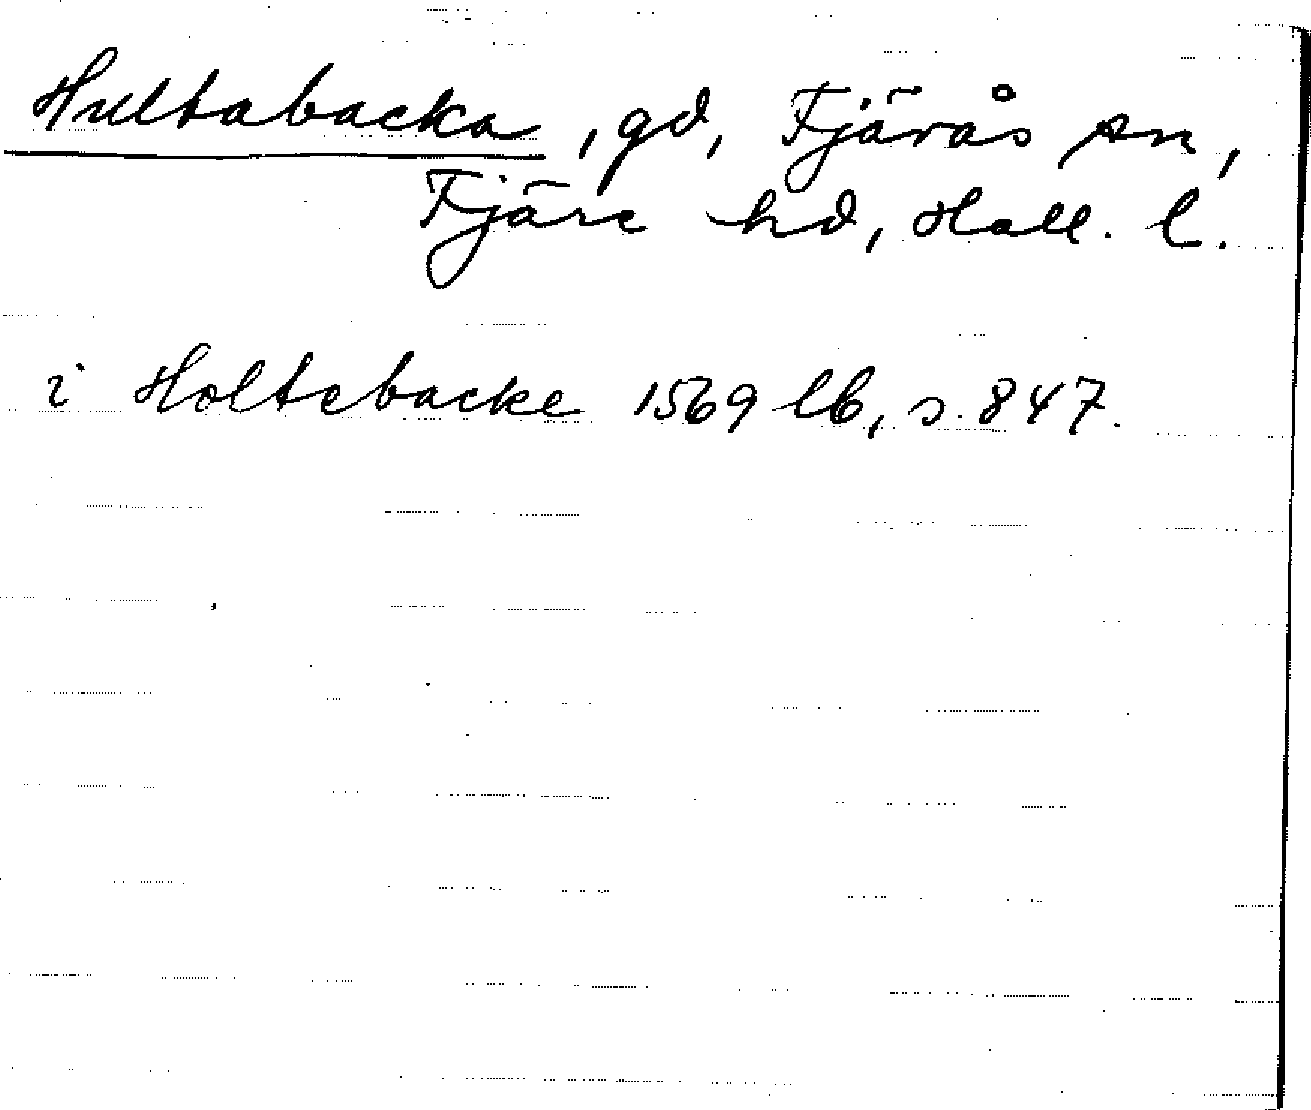 Hultabacka, gd, Fjärås sn,
Fjäre hd, Hall. l.
i Holtebacke 1569 lb, s. 847.